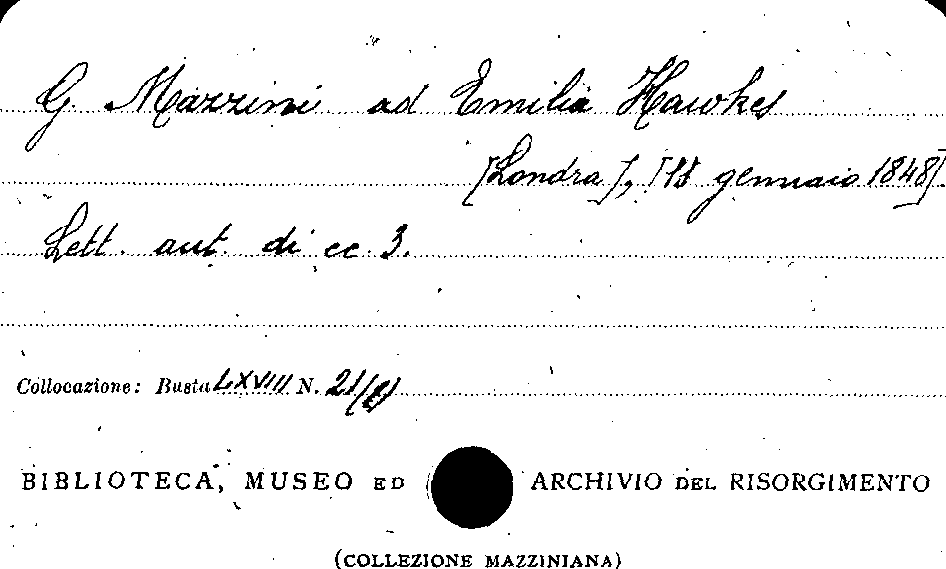 G. Mazzini ad Emilia Hawkes
[Londra], [15 gennaio 1848].
Lett. aut. di cc 3.
Collocazione: Busta LXVIII N. 21/
BIBLIOTECA, MUSEO ED ARCHIVIO DEL RISORGIMENTO
(COLLEZIONE MAZZINIANA)